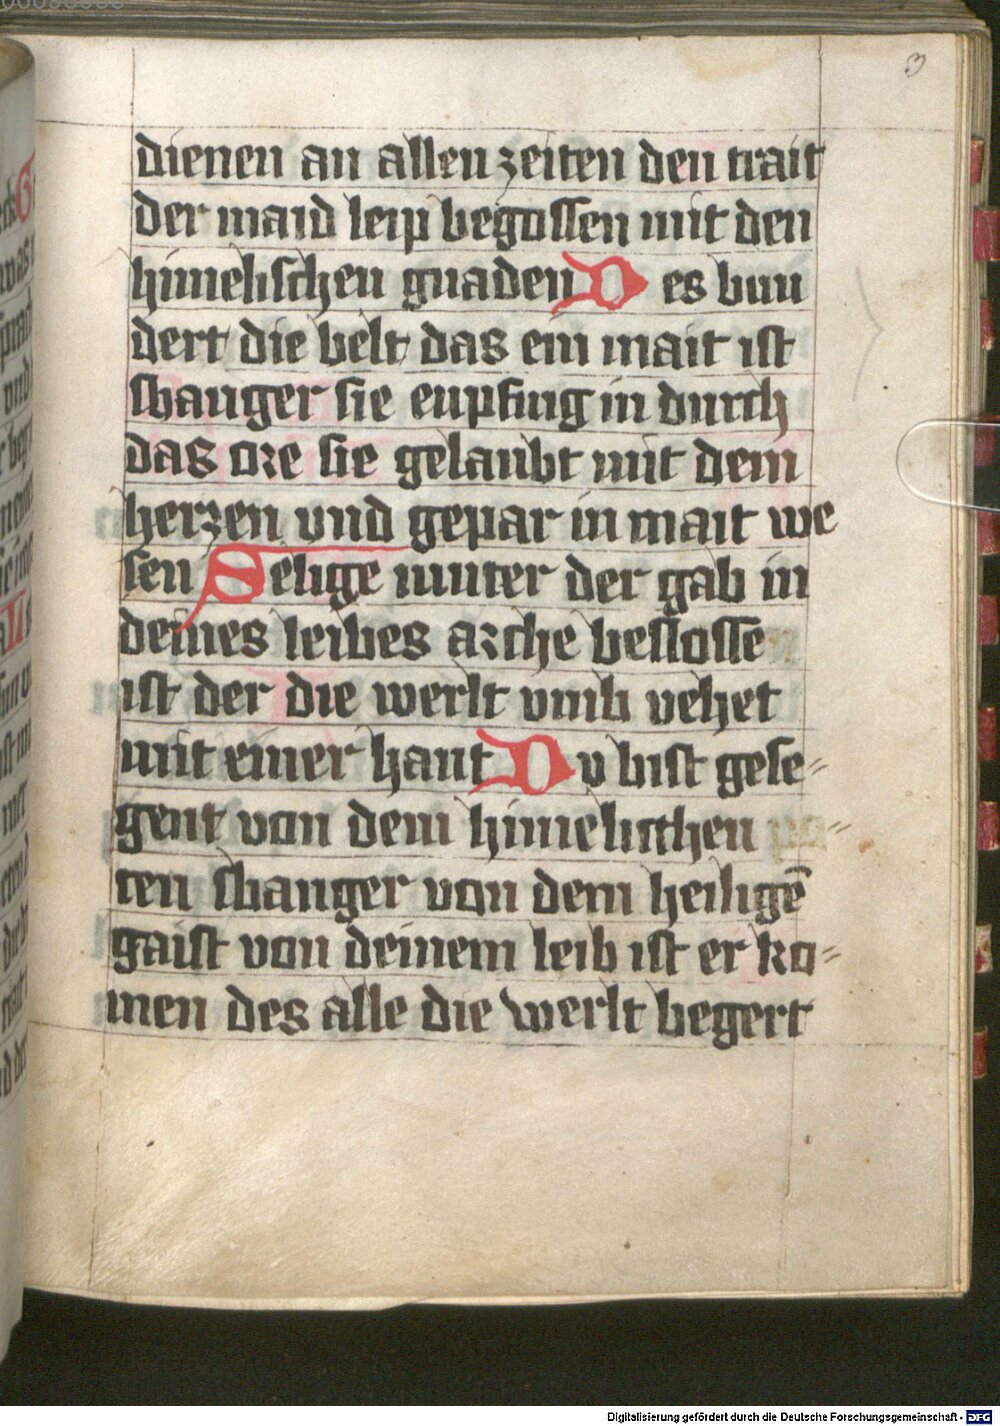 3
dienen an allen zeiten den trait
der maid leip begossen mit den
himelischen gnaden D es bun
dert die belt das ein mait ist
sbanger sie enpfing in durch
das ore sie gelaubt mit dem
herzen vnd gepar in mait we
sen Selige muter der gab in
deines leibes arche beslosse
ist der die werlt vmb vehet
mit einer hant Dv bist gese-
gent von dem himelischen
ten sbanger von dem heiligē
gaist von deinem leib ist er ko-
men des alle die werlt begert
Digitalisierung gefördert durch die Deutsche Forschungsgemeinschaft - DFG